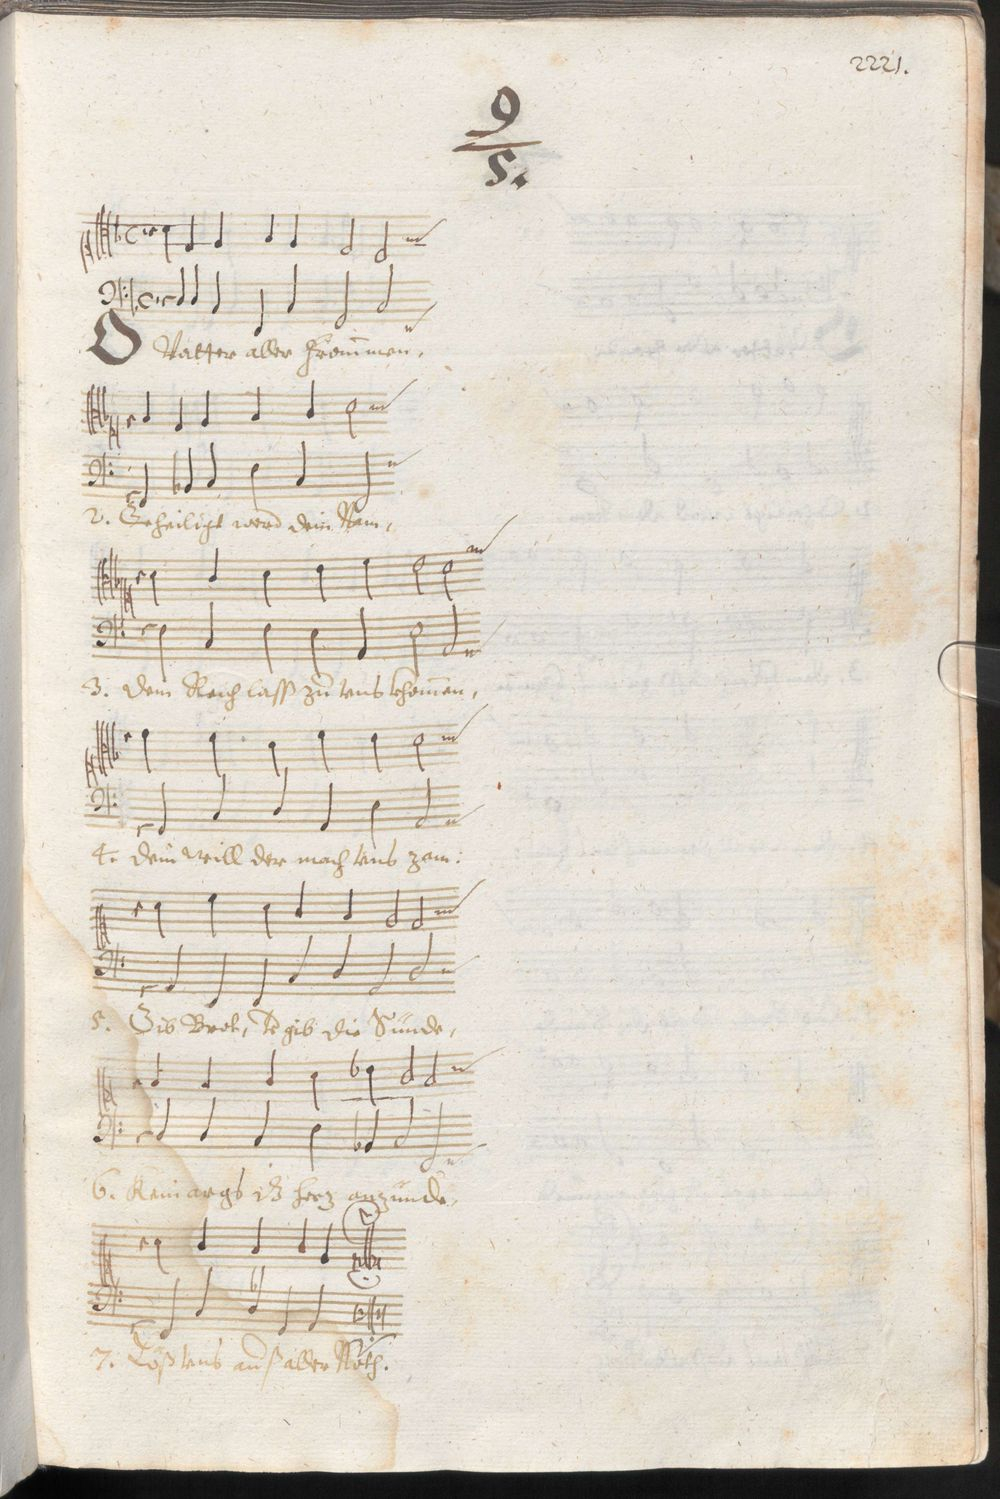 2221.
9
5.
O Vatter aller frommen,
2. Geheiligt werd dein Nam,
3. Dein Reich lass zu vns khomen,
4. Dein Will der mach vns zam:
5. Gib Brot, vergib die Sünde,
6. Kein args dz Herz anzünde,
7. Löß vns auß aller Noth.